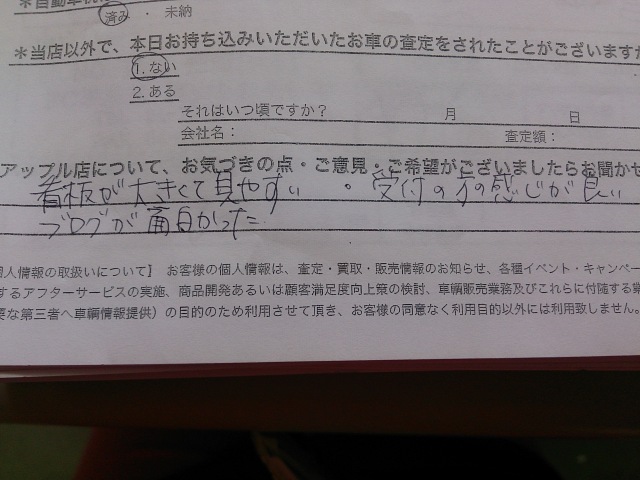 済み ・ 未納
＊当店以外で、本日お持ち込みいただいたお車の査定をされたことがございますか
1. ない
2. ある
それはいつ頃ですか？ 月 日
会社名： 査定額：
アップル店について、お気づきの点・ご意見・ご希望がございましたらお聞かせ
看板が大きくて見やすい ・ 受付の方の感じが良い
ブログが面白かった
個人情報の取扱いについて】 お客様の個人情報は、査定・買取・販売情報のお知らせ、各種イベント・キャンペー
するアフターサービスの実施、商品開発あるいは顧客満足度向上策の検討、車輌販売業務及びこれらに付随する業
要な第三者へ車輌情報提供）の目的のため利用させて頂き、お客様の同意なく利用目的以外には利用致しません。